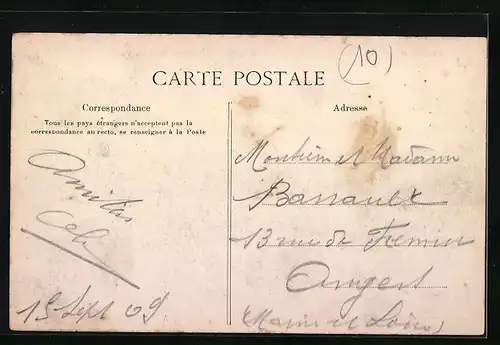 (10)
CARTE POSTALE
Correspondance
Tous les pays étrangers n'acceptent pas la
correspondance au recto, se renseigner à la Poste
Adresse
Amitiés
Sept 09
Monsieur et Madame
13 rue de
Angers
(Maine et Loire)